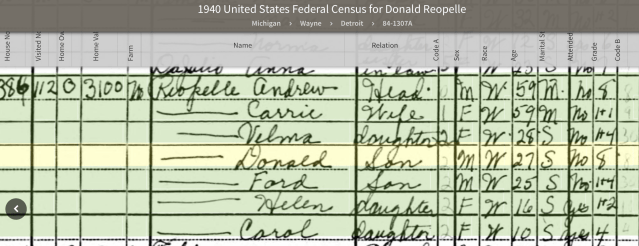 1940 United States Federal Census for Donald Reopelle
Michigan > Wayne > Detroit > 84-1307A
House No Visited No Home Ow Home Val Farm Name Relation Code A Sex Race Age Marital S Attended Grade Code B
Anna in-law
386 112 O 3100 No Riopelle Andrew Head M W 59 M No 8
Carrie Wife 1 F W 59 M No H1
Velma daughter 2 F W 28 S No H4
Donald Son M W 27 S No 8
Ford Son M W 25 S No H4
Helen daughter F W 16 S Yes H2
Carol daughter F W 10 S yes 4